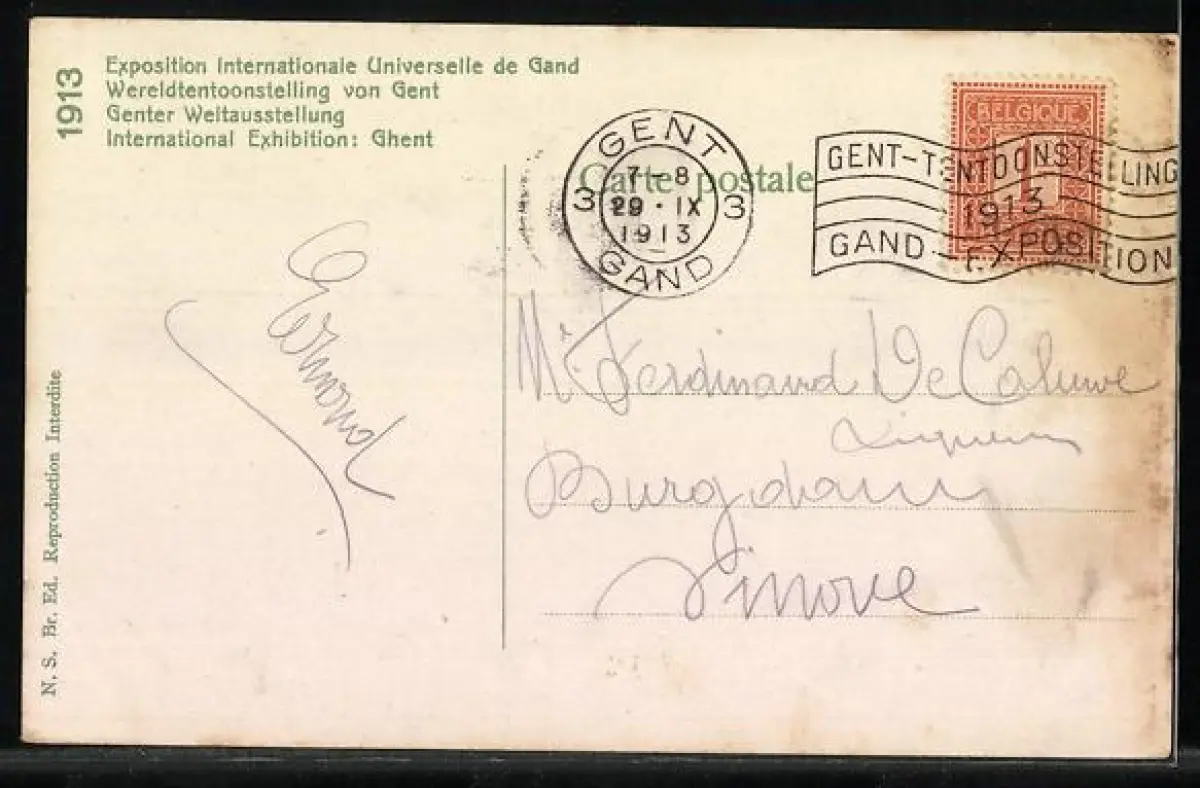 1913
Exposition Internationale Universelle de Gand
Wereldtentoonstelling von Gent
Genter Weltausstellung
International Exhibition: Ghent
Carte postale
GENT
7-8
3 29 · IX 3
1913
GAND
BELGIQUE
GENT-TENTOONSTELLING
1913
GAND-EXPOSITION
Mr Ferdinand De Caluwe
Burgdam
Ninove
N. S. Br. Ed. Reproduction Interdite